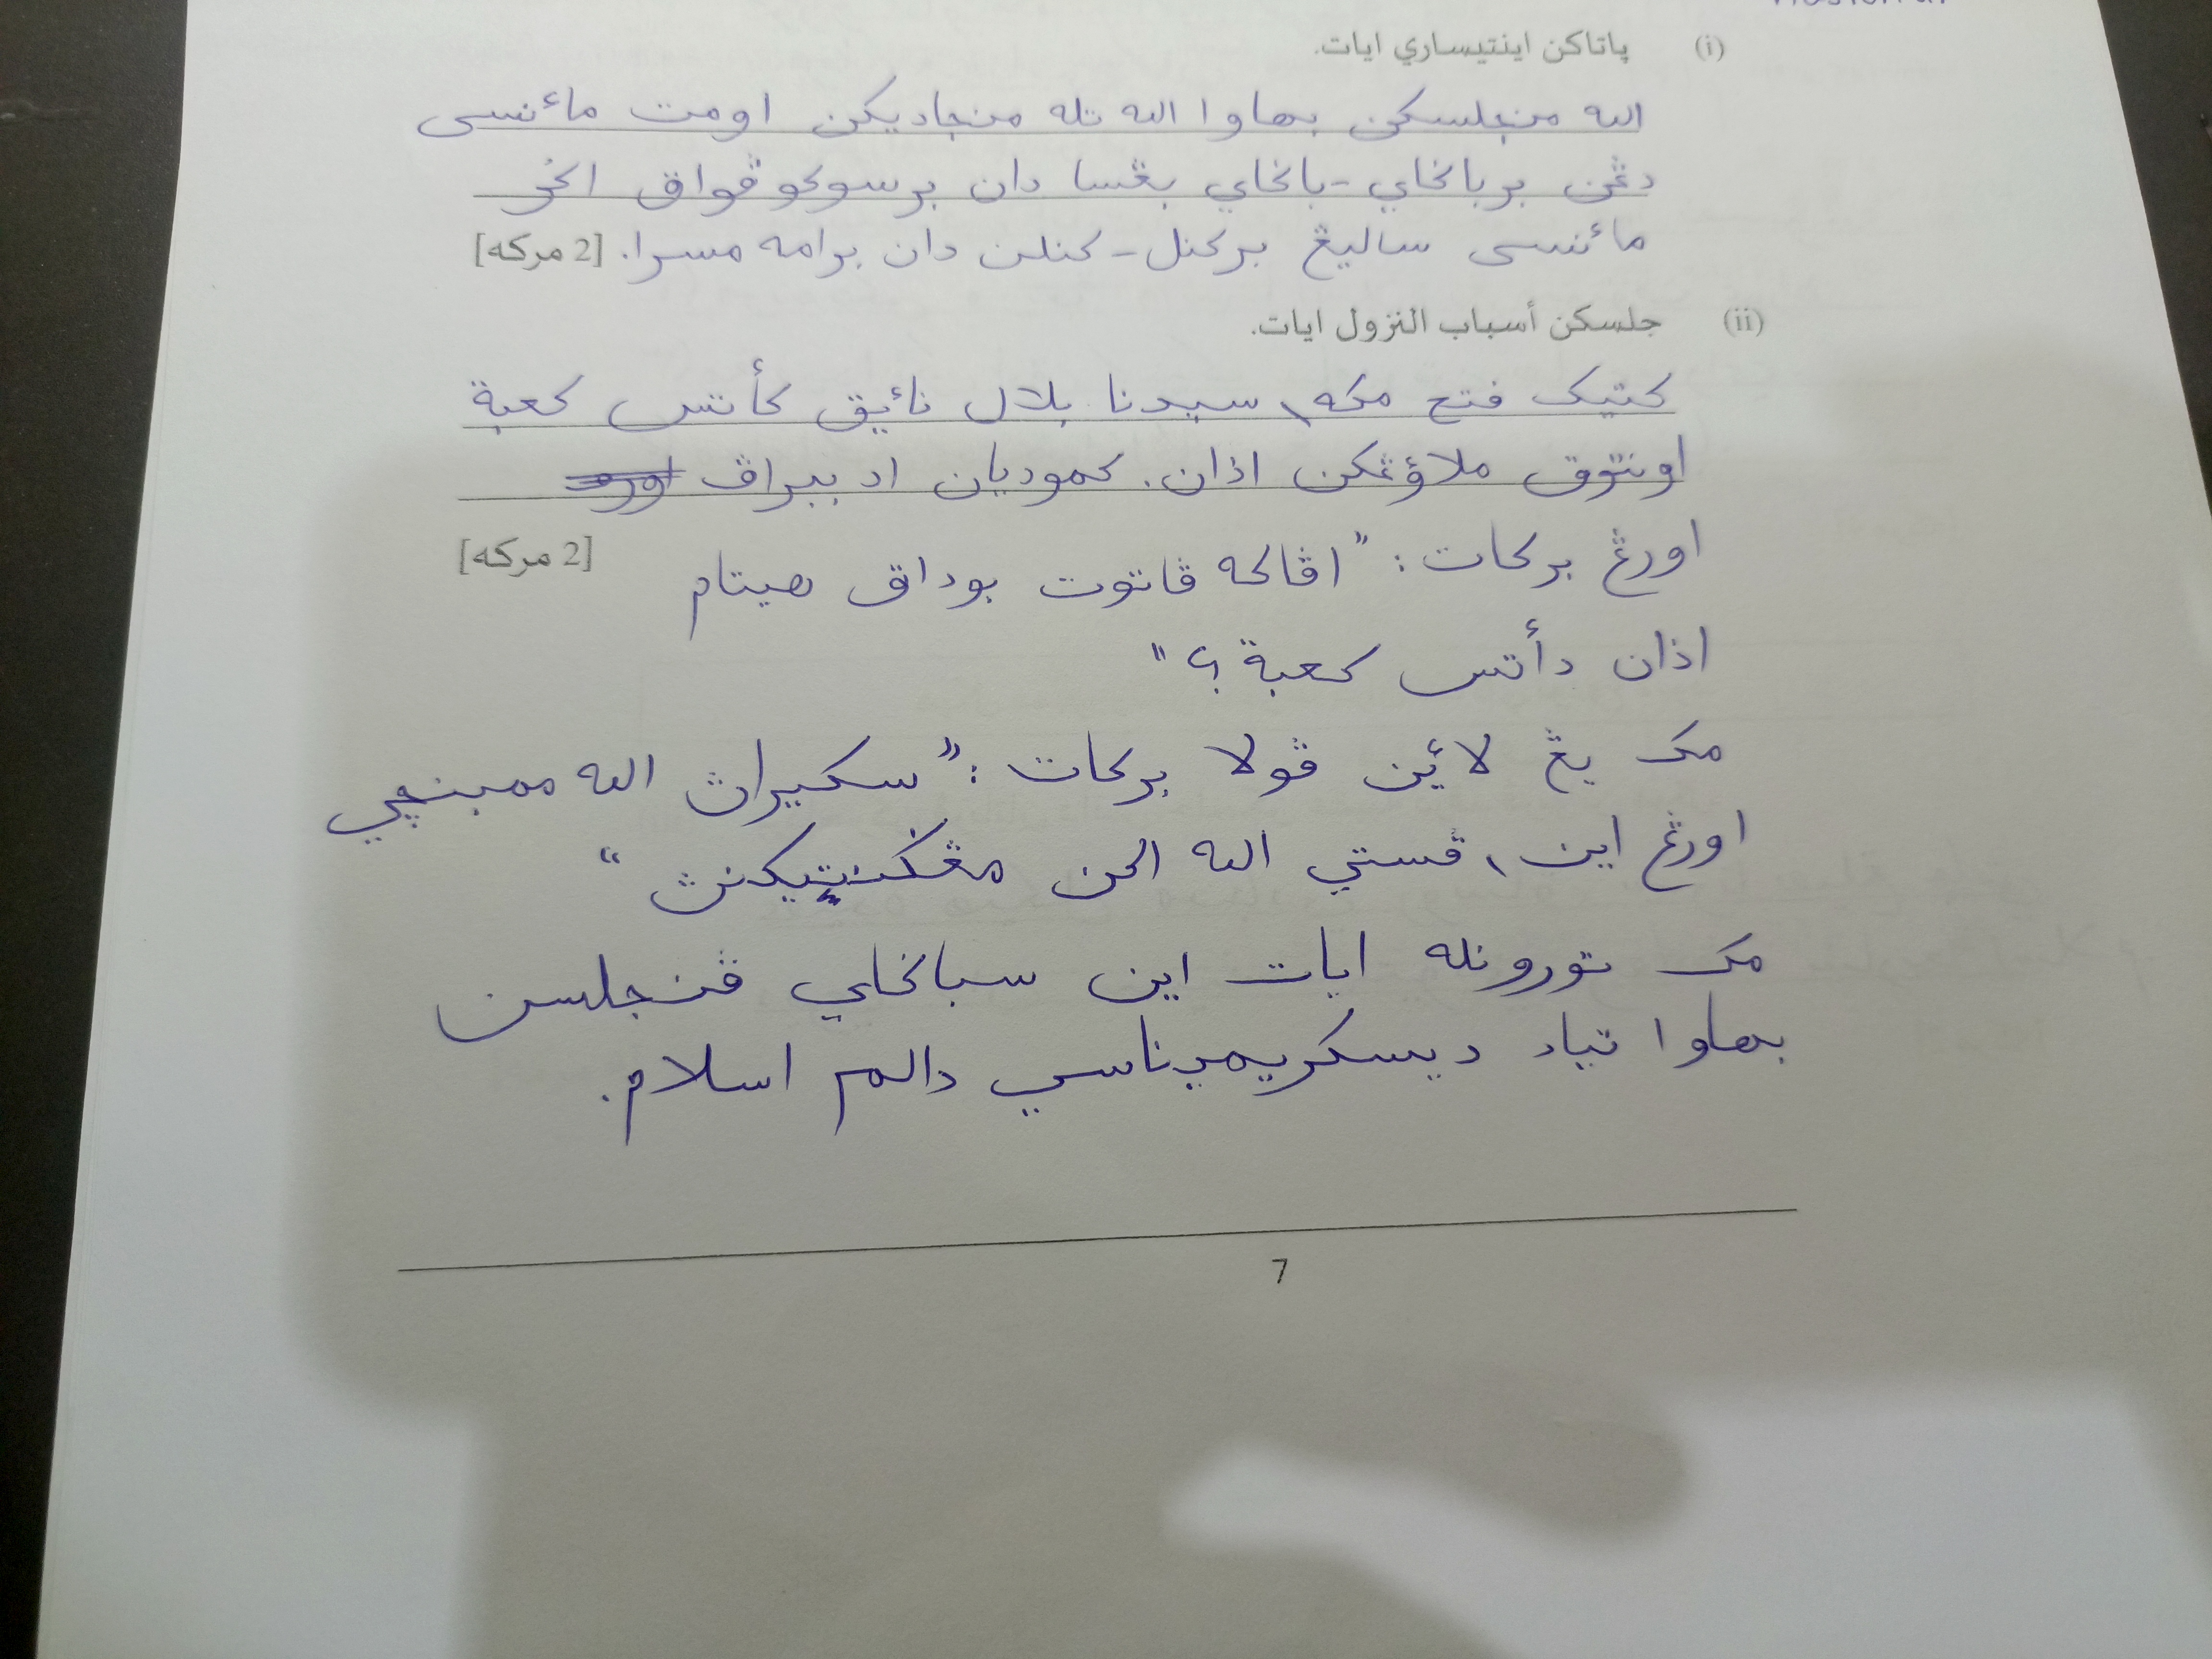 (i) ڽاتاكن اينتيساري ايات.
الله منجلسكن بهاوا الله تله منجاديكن اومت مأنسى
دڠن برباݢاي-باݢاي بڠسا دان برسوكو ڤواق اݢر
مأنسى ساليڠ بركنل-كنلن دان برامه مسرا. [2 مركه]
(ii) جلسكن أسباب النزول ايات.
كتيک فتح مكه، سيدنا بلال نائيق كأتس كعبة
اونتوق ملاؤڠكن اذان. كمودين اد ببراڤ
اورڠ بركات: "اڤاكه ڤاتوت بوداق هيتام [2 مركه]
اذان دأتس كعبة؟"
مک يڠ لائين ڤولا بركات: "سكيراڽ الله ممبنچي
اورڠ اين، ڤستي الله اكن مڠݢنتيكنڽ"
مک تورونله ايات اين سباݢاي ڤنجلسن
بهاوا تياد ديسكريميناسي دالم اسلام.
7